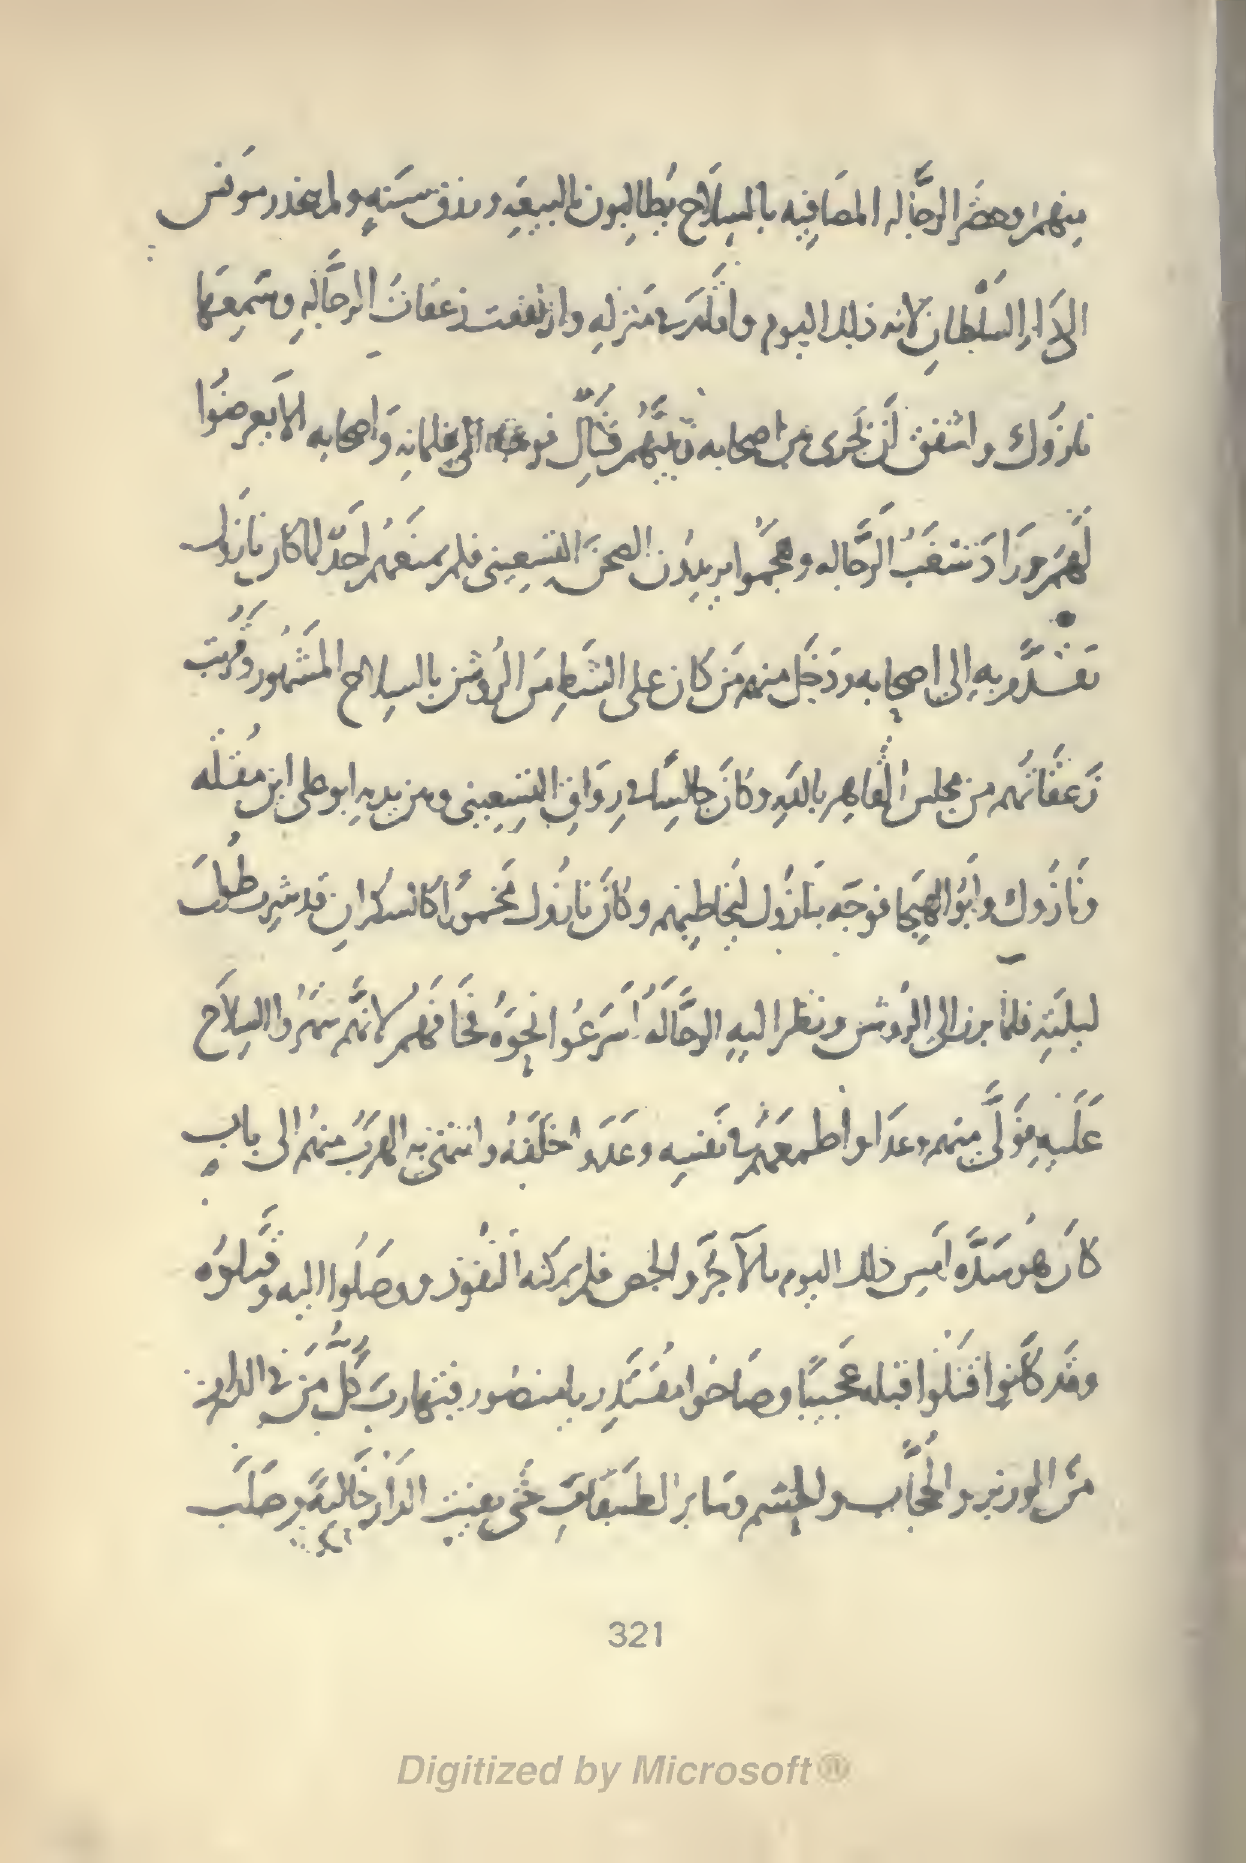 منهم وحضر الرجّاله المصافيه بالسلاح يُطالبون بالبيعه ورزق سنه ولم ينحدر مونس
الى دار السلطان لانه ذلك اليوم واقام فى منزله وارتفعت زعقات الرجّاله وسمعها
نازوك واشفق أن يجرى من اصحابه وبينهم قتال فوجّه الى غلمانه واصحابه الا يعرضوا
لهم وزاد شغب الرجّاله وهجموا يريدون الصحن التسعينى فلم يمنعهم احد لما كان نازوك
تقدّم به الى اصحابه ودخل منهم من كان على الشط من الروشن بالسلاح المشهور وقربت
زعقاتهم من مجلس القاهر بالله وكان جالسا فى رواق التسعينى وبين يديه ابو على ابن مقله
ونازوك وابو الهيجا فوجه بنازوك ليخاطبهم وكان نازوك مخمورا كالسكران قد شرب طول
ليلته فلما برز الى الروشن ونظر اليه الرجّاله أسرعوا نحوه فخافهم لانهم شهروا السلاح
عليه فولّى منهم وعدا واطمعهم فى نفسه وعدوا خلفه وانتهى به الهرب منهم الى باب
كان هو سدّه امس ذلك اليوم بالآجرّ والجص فلم يمكنه النفوذ ووصلوا اليه وقتلوه
وقد كانوا قتلوا قبله عجيبا وصاحوا مقتدر يا منصور فتهارب كلّ من فى الدار
من الوزير والحجّاب والحشم وساير الطبقات حتى بقيت الدار خالية وصلب
321
Digitized by Microsoft®